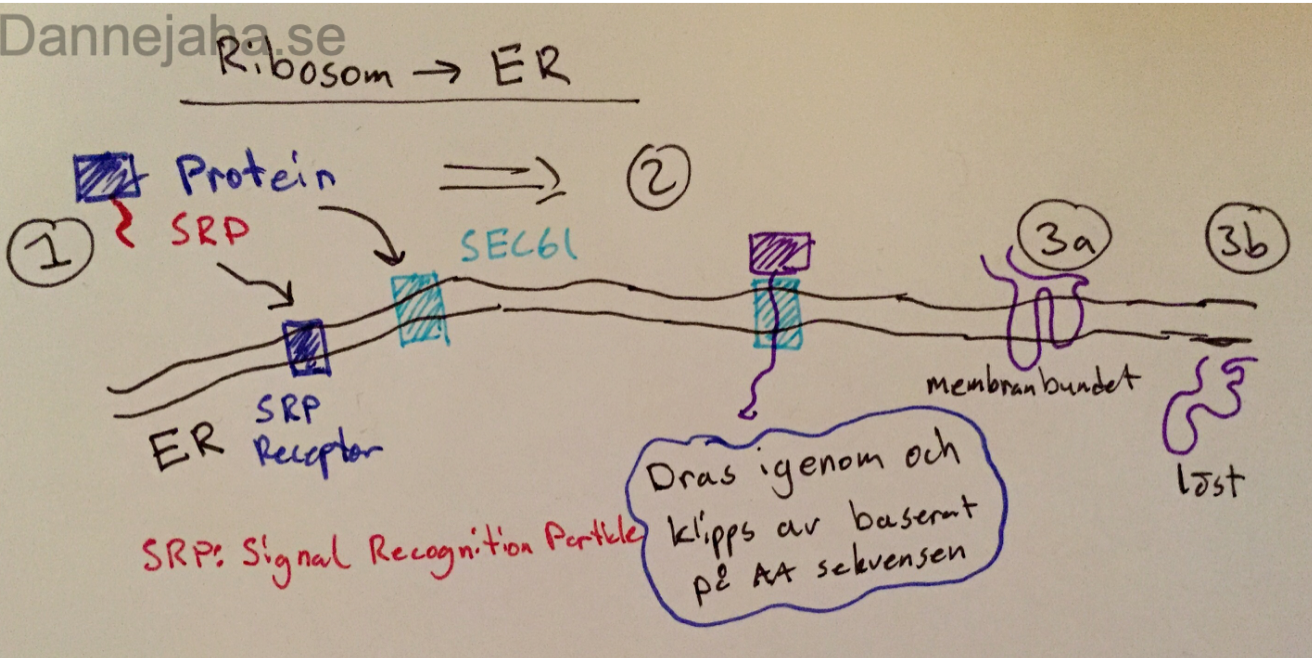 Dannejaha.se
Ribosom → ER
Protein ⇒ 2
1 SRP
SEC61
3a
3b
SRP
Receptor
ER
membranbundet
löst
Dras igenom och
klipps av baserat
på AA sekvensen
SRP: Signal Recognition Particle